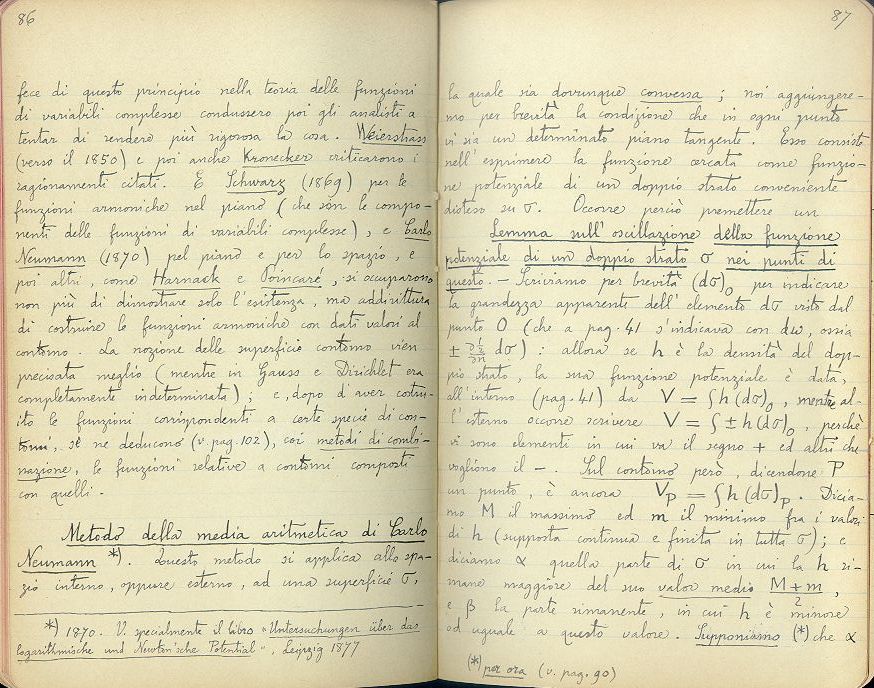 86
fece di questo principio nella teoria delle funzioni
di variabili complesse condussero poi gli analisti a
tentar di rendere più rigorosa la cosa. Weierstrass
(verso il 1850) e poi anche Kronecker criticarono i
ragionamenti citati. E Schwarz (1869) per le
funzioni armoniche nel piano (che son le compo-
nenti delle funzioni di variabili complesse), e Carlo
Neumann (1870) pel piano e per lo spazio, e
poi altri, come Harnack e Poincaré, si occuparono
non più di dimostrare solo l'esistenza, ma addirittura
di costruire le funzioni armoniche con dati valori al
contorno. La nozione delle superficie contorno vien
precisata meglio (mentre in Gauss e Dirichlet era
completamente indeterminata); e, dopo d'aver costru-
ito le funzioni corrispondenti a certe specie di con-
torni, se ne deducono (v. pag. 102), coi metodi di combi-
nazione, le funzioni relative a contorni composti
con quelli.
Metodo della media aritmetica di Carlo
Neumann *). Questo metodo si applica allo spa-
zio interno, oppure esterno, ad una superficie σ,
*) 1870. V. specialmente il libro "Untersuchungen über das
logarithmische und Newton'sche Potential", Leipzig 1877
87
la quale sia dovunque convessa; noi aggiungere-
mo per brevità la condizione che in ogni punto
vi sia un determinato piano tangente. Esso consiste
nell'esprimere la funzione cercata come funzio-
ne potenziale di un doppio strato conveniente
disteso su σ. Occorre perciò premettere un
Lemma sull'oscillazione della funzione
potenziale di un doppio strato σ nei punti di
questo. – Scriviamo per brevità (dσ)₀ per indicare
la grandezza apparente dell'elemento dσ visto dal
punto O (che a pag. 41 s'indicava con dω, ossia
± ∂(1/r)/∂n dσ): allora se h è la densità del dop-
pio strato, la sua funzione potenziale è data,
all'interno (pag. 41) da V = ∫h(dσ)₀, mentre al-
l'esterno occorre scrivere V = ∫±h(dσ)₀, perchè
vi sono elementi in cui va il segno + ed altri che
vogliono il –. Sul contorno però, dicendone P
un punto, è ancora V_P = ∫h(dσ)_P. Dicia-
mo M il massimo ed m il minimo fra i valori
di h (supposta continua e finita in tutta σ); e
diciamo α quella parte di σ in cui la h ri-
mane maggiore del suo valor medio (M+m)/2,
e β la parte rimanente, in cui h è minore
od uguale a questo valore. Supponiamo (*) che α
(*) per ora (v. pag. 90)